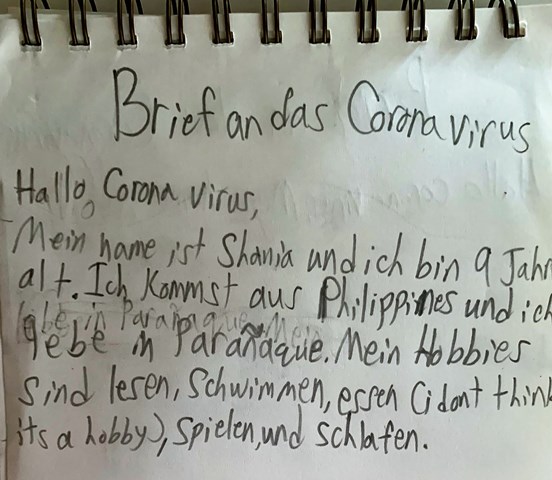 Brief an das Corona virus
Hallo, Corona virus,
Mein name ist Shania und ich bin 9 Jahr
alt. Ich Kommst aus Philippines und ich
gebe in Parañaque. Mein Hobbies
Sind lesen, Schwimmen, essen (i dont think
its a hobby), Spielen, und schlafen.